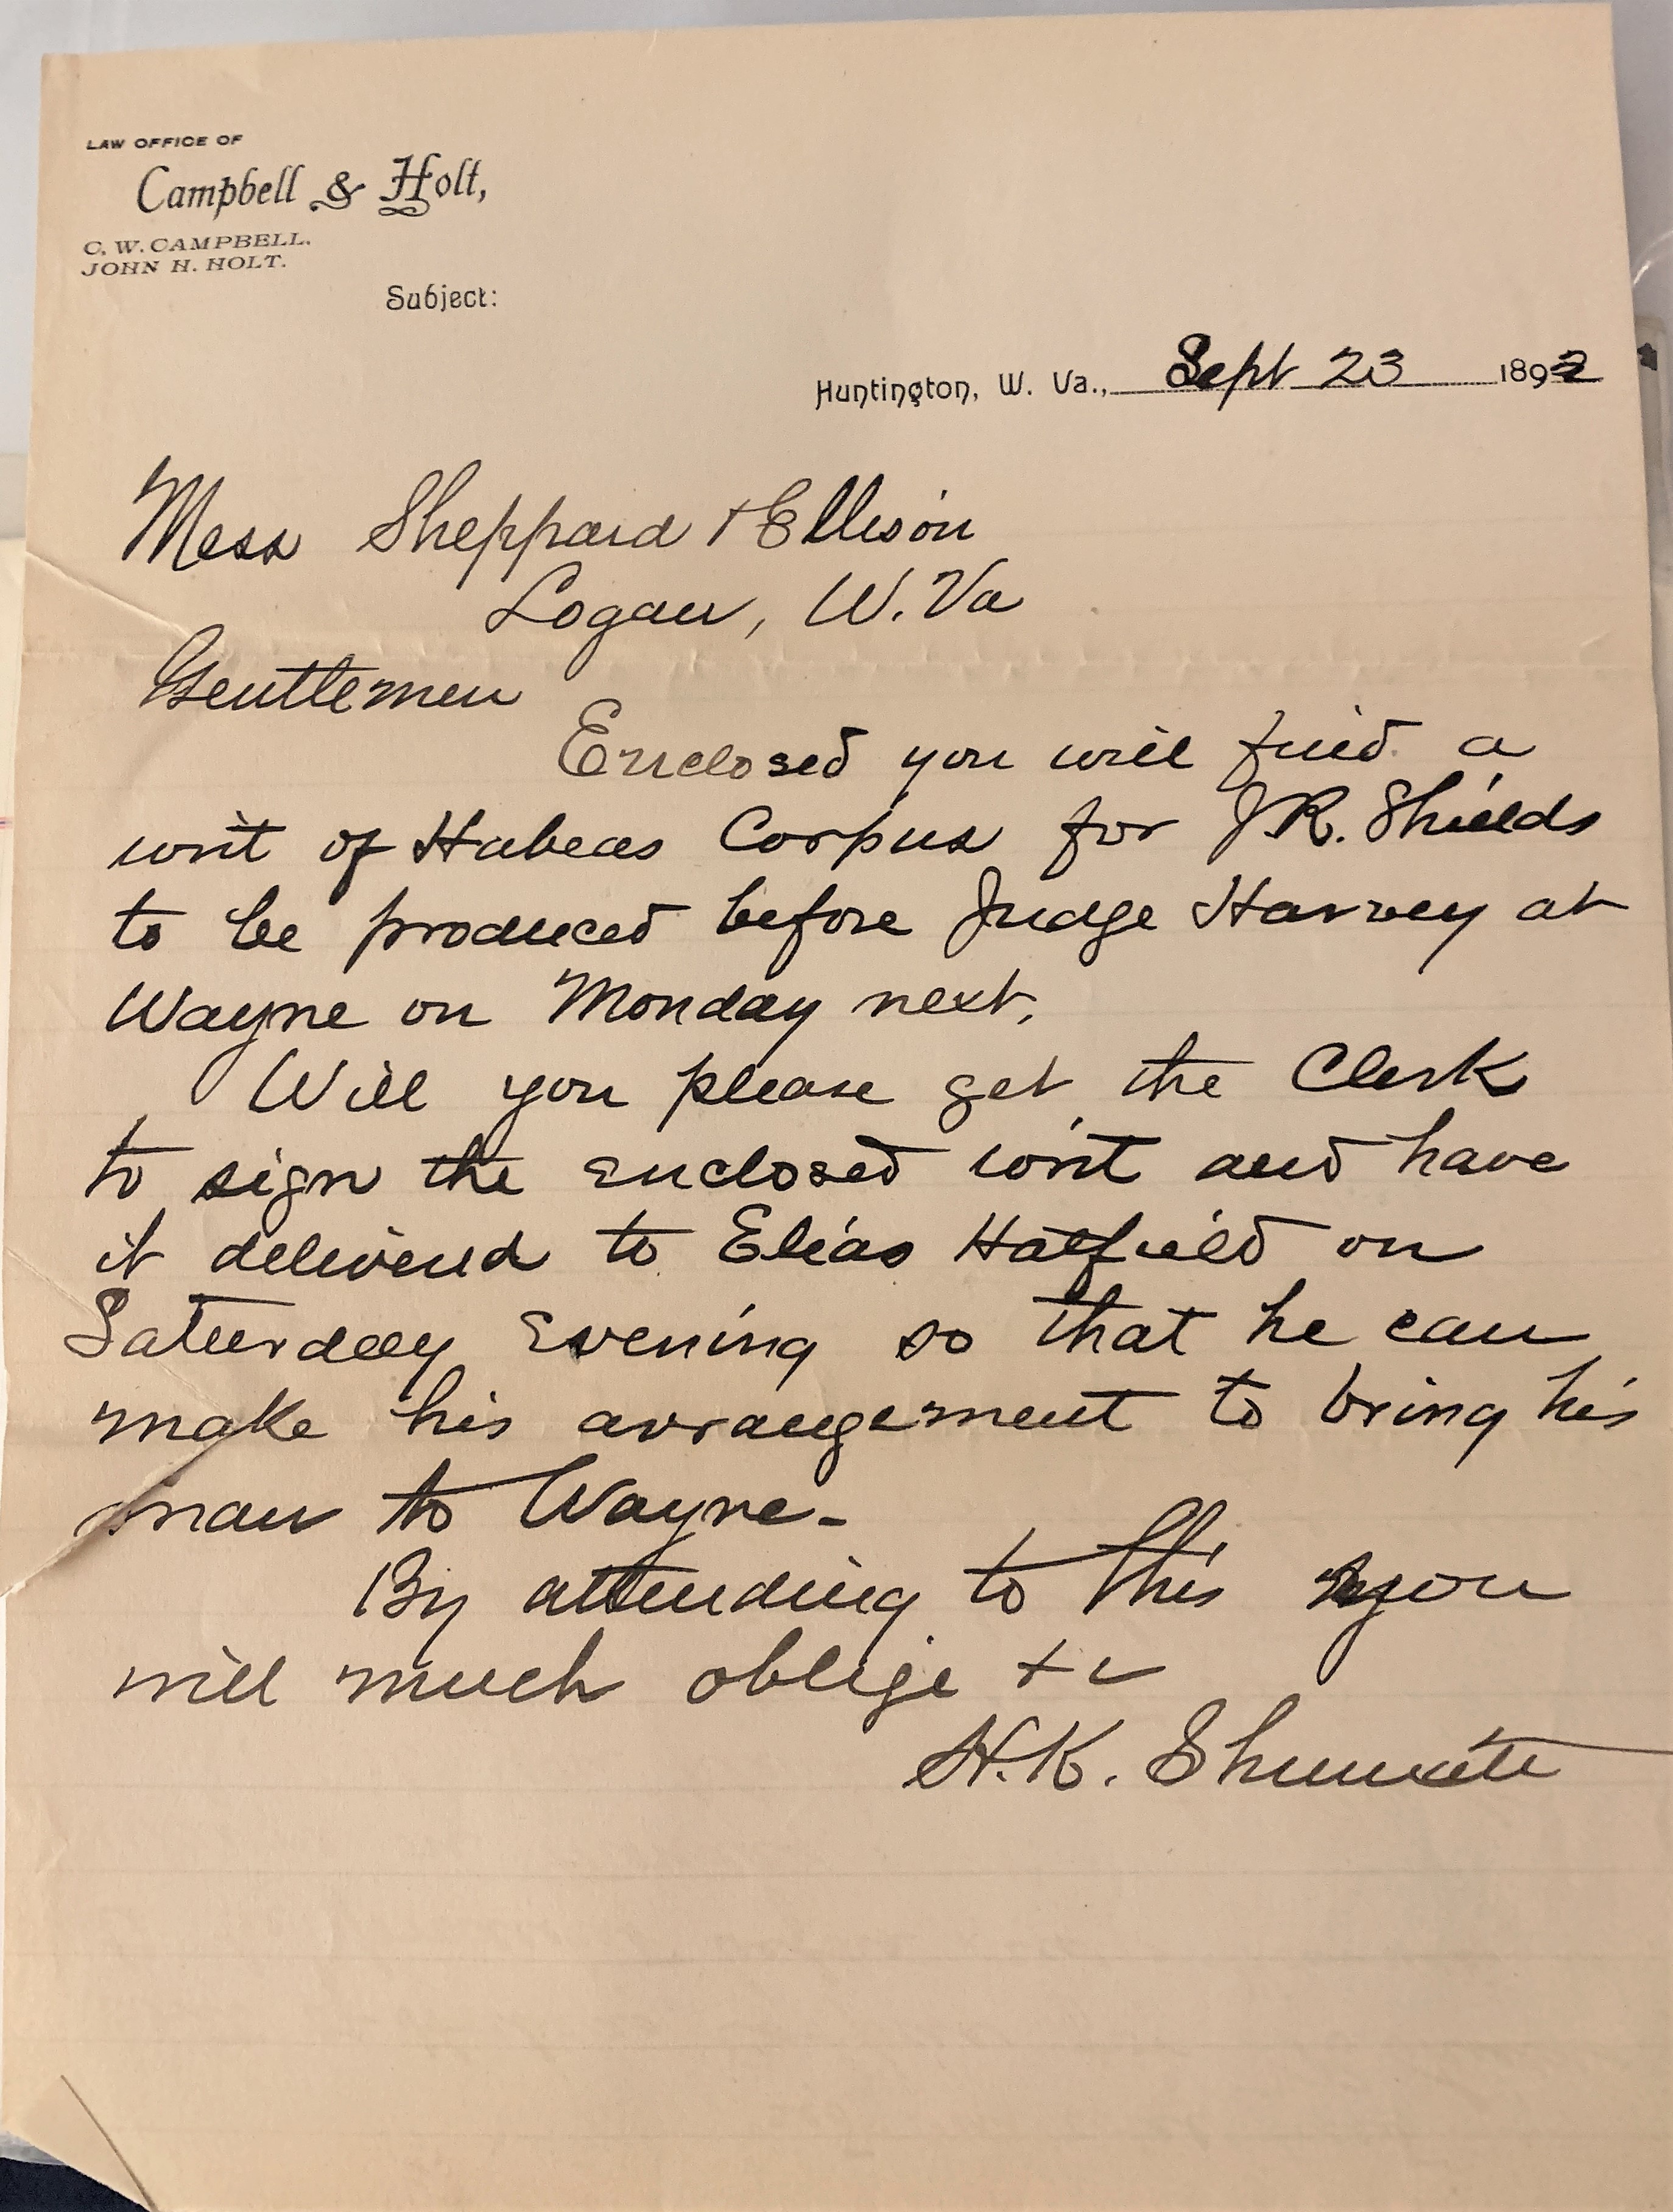 LAW OFFICE OF
Campbell & Holt,
C. W. CAMPBELL.
JOHN H. HOLT.
Subject:
Huntington, W. Va., Sept 23 1892
Mess Sheppard & Ellison
Logan, W. Va
Gentlemen
Enclosed you will find a
writ of Habeas Corpus for J.R. Shields
to be produced before Judge Harvey at
Wayne on Monday next.
Will you please get the Clerk
to sign the enclosed writ and have
it delivered to Elias Hatfield on
Saturday Evening so that he can
make his arrangement to bring his
man to Wayne-
By attending to this you
will much oblige &c
H.K. Shumate